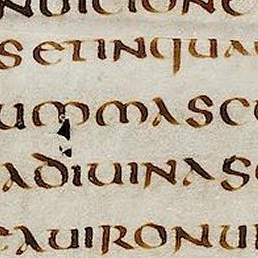 ndicione
setinqua
ummasc
adiuinasc
auironui